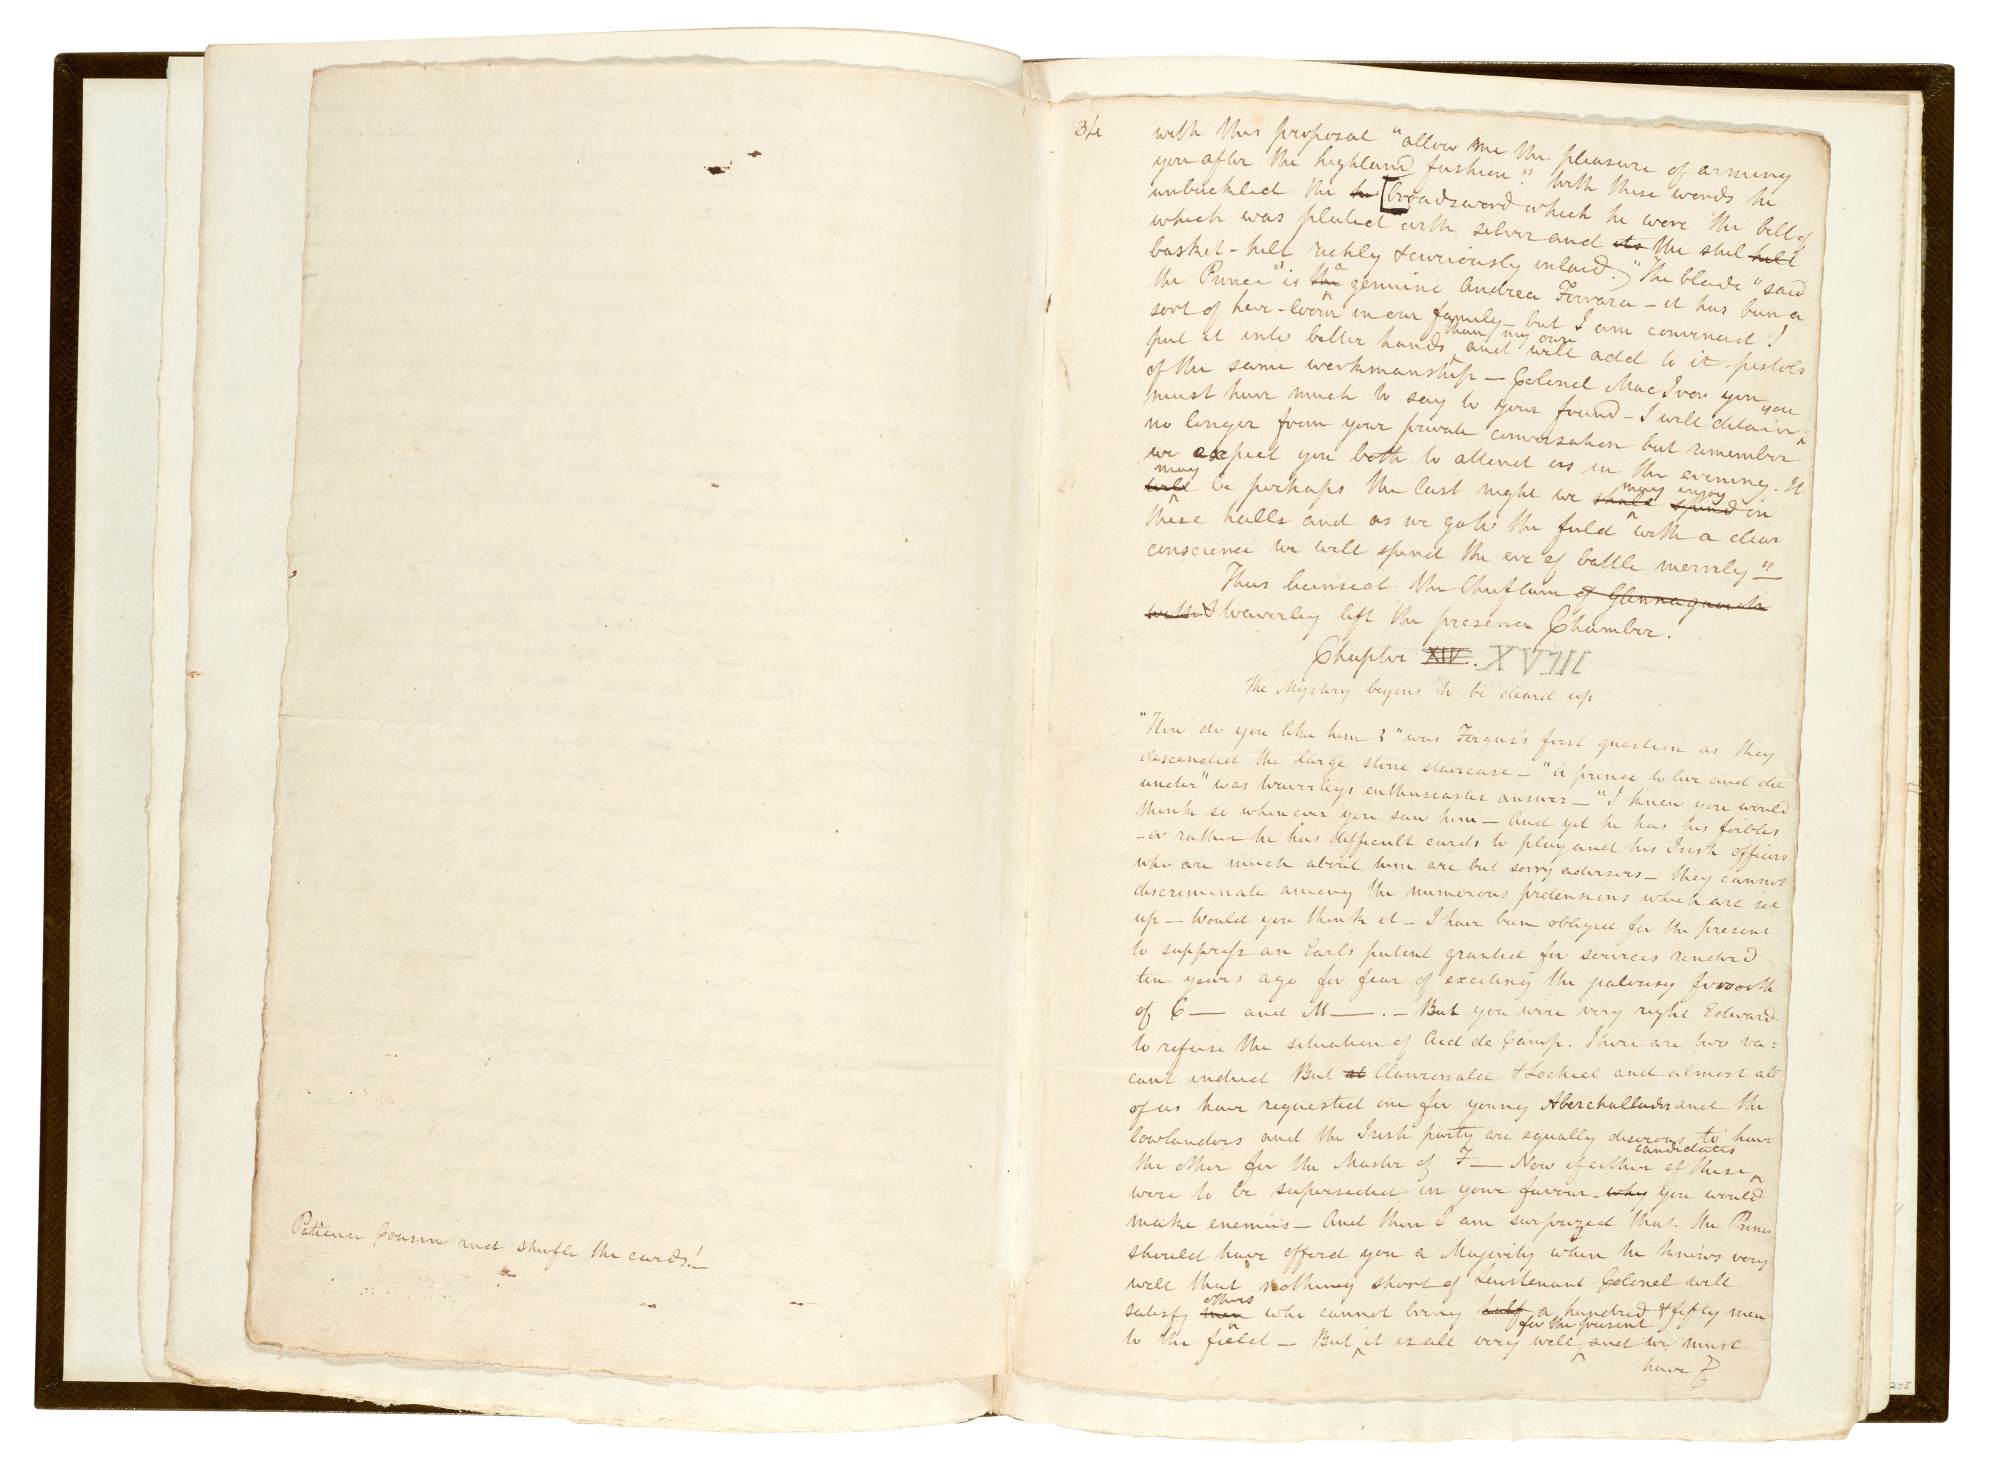 Patience Cousin and shufle the cards!—
34
with this proposal "allow me the pleasure of arming
you after the highland fashion." With these words he
unbuckled the broadsword which he wore the belt of
which was plated with silver and its the steel hilt
basket-hilt richly & curiously inlaid. "The blade" said
the Prince "is the a genuine Andrea Ferrara – it has been a
sort of heir-loom in our family – but I am convinced I
put it into better hands than my own and will add to it pistols
of the same workmanship – Colonel Mac Ivor you
must have much to say to your friend – I will detain you
no longer from your private conversation but remember
we expect you both to attend us in the evening. It
will may be perhaps the last night we shall may spend enjoy in
these halls and as we go to the field with a clear
conscience we will spend the eve of battle merrily"—
Thus licensed the Chieftain of Glennaquoich
with & Waverley left the presence Chamber.
Chapter XIV. XVIII
The Mystery begins to be cleard up
"How do you like him?" was Fergus's first question as they
descended the large stone staircase – "A prince to live and die
under" was Waverleys enthusiastic answer – "I knew you would
think so whenever you saw him – And yet he has his foibles
– or rather he has difficult cards to play and his Irish officers
who are much about him are but sorry advisers – they cannot
discriminate among the numerous pretensions which are set
up – Would you think it – I have been obliged for the present
to suppress an Earls patent granted for services renderd
ten years ago for fear of exciting the jealousy forsooth
of C— and M—. – But you were very right Edward
to refuse the situation of Aid de Camp. There are two va=
cant indeed But at Clanronald & Lochiel and almost all
of us have requested one for young Aberchallader and the
lowlanders and the Irish party are equally desirous to have
the other for the Master of F— Now if either of these candidates
were to be superseded in your favour why you would
make enemies – And then I am surprized that the Prince
should have offerd you a Majority when he knows very
well that nothing short of Lieutenant Colonel will
satisfy men others who cannot bring half a hundred & fifty men
to the field – But it is all very well for the present and we must
have
275